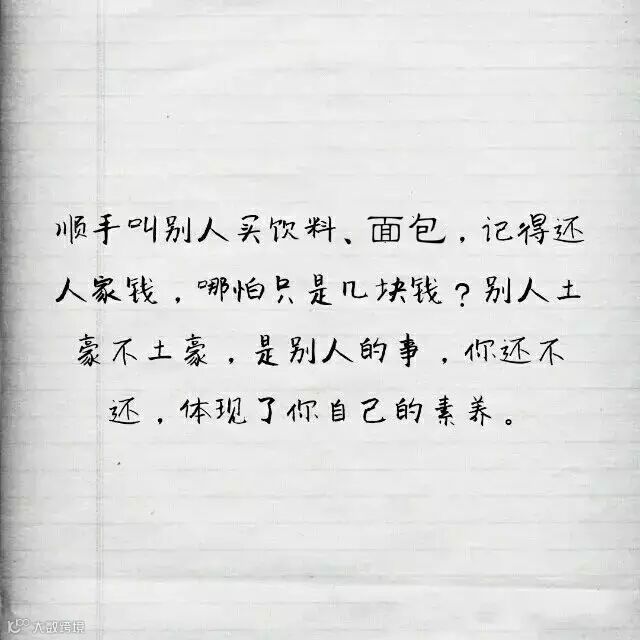 顺手叫别人买饮料、面包，记得还
人家钱，哪怕只是几块钱？别人土
豪不土豪，是别人的事，你还不
还，体现了你自己的素养。
大数跨境